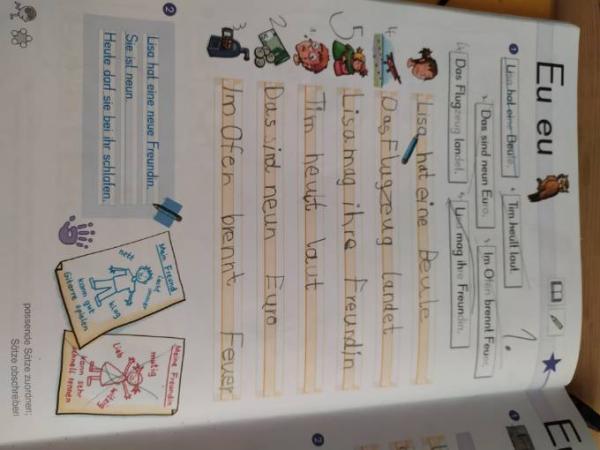 Eu eu
Lisa hat eine Beule.
Tim heult laut.
Das sind neun Euro.
Im Ofen brennt Feuer.
Das Flugzeug landet.
Lisa mag ihre Freundin.
Lisa hat eine Beule
Das Flugzeug landet
Lisa mag ihre Freundin
Tim heult laut
Das sind neun Euro
Im Ofen brennt Feuer
Lisa hat eine neue Freundin.
Sie ist neun.
Heute darf sie bei ihr schlafen.
Mein Freund
nett
klug
kann gut
Gitarre spielen
Meine Freundin
mutig
lieb
kann sehr
schnell rennen
passende Sätze zuordnen;
Sätze abschreiben